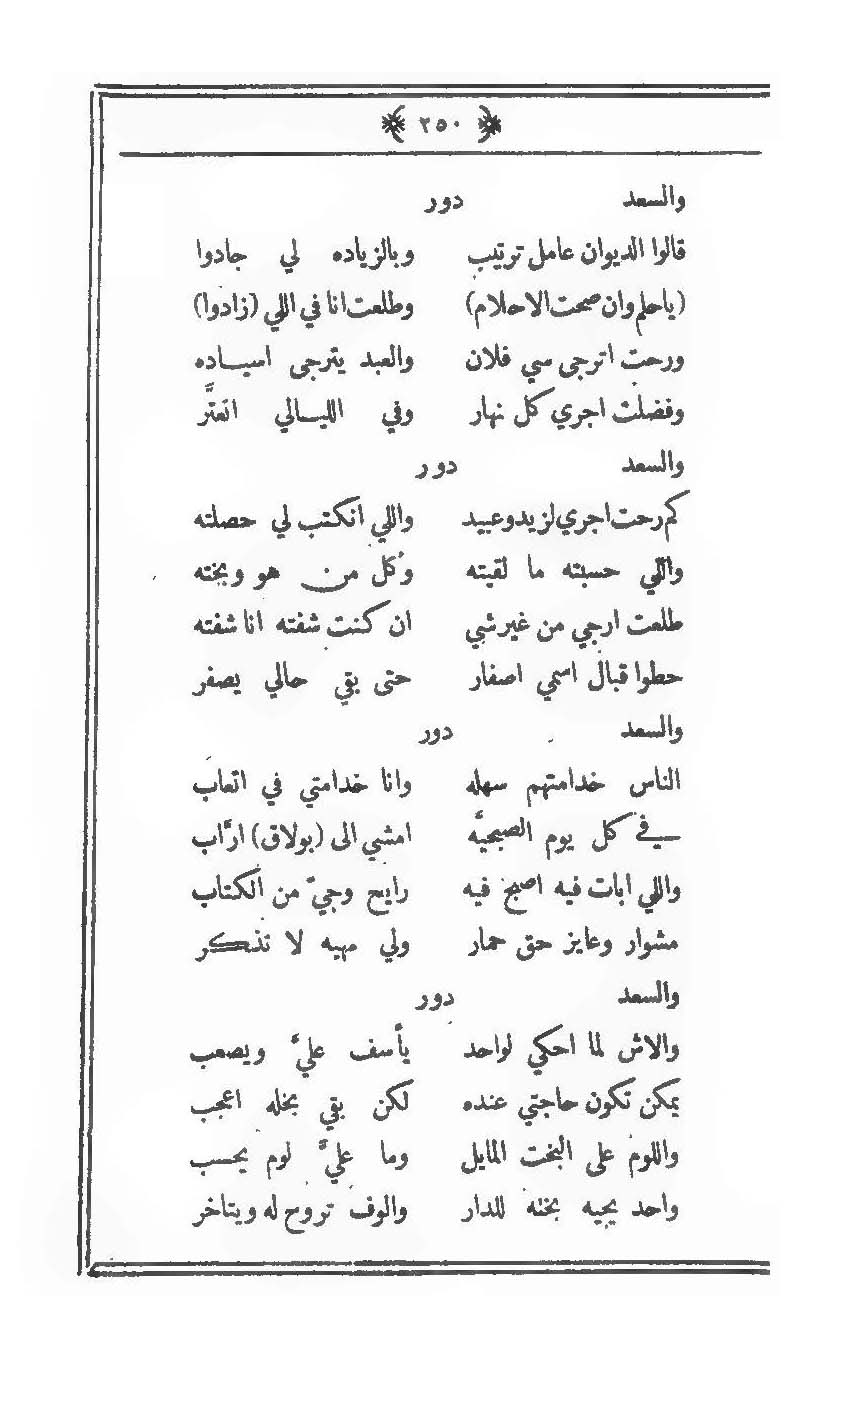 ٢٥٠
والسعد دور
قالوا الديوان عامل ترتيب وبالزياده لي جادوا
(ياحلم وان صحت الاحلام) وطلعت انا في اللي (زادوا)
ورحت اترجى سي فلان والعبد يترجى اسياده
وفضلت اجري كل نهار وفي الليالي اتعتَّر
والسعد دور
كم رحت اجري لزيد وعبيد واللي انكتب لي حصلته
واللي حسبته ما لقيته وكل من هو وبخته
طلعت ارجي من غير شي ان كنت شفته انا شفته
حطوا قبال اسمي اصفار حتى بقي حالي يصفر
والسعد دور
الناس خدامتهم سهله وانا خدامتي في اتعاب
في كل يوم الصبحيَّه امشي الى (بولاق) ارَّاب
واللي ابات فيه اصبح فيه رايح وجيّ من الكتاب
مشوار وعايز حق حمار ولي مهيه لا تذكر
والسعد دور
والاش لما احكي لواحد يأسف عليَّ ويصعب
يمكن تكون حاجتي عنده لكن بقي بخله اعجب
واللوم على البخت المايل وما عليَّ لوم يحسب
واحد يجيه بخته للدار والوف تروح له ويتاخر